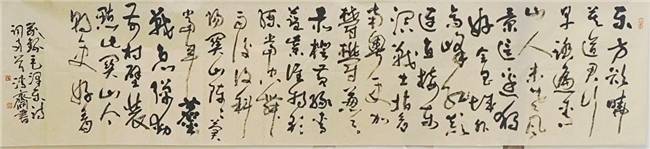 东方欲曉
莫道君行
早踏遍青
山人未老风
景这边独
好会昌城外
高峰颠
连直接东
溟战士指看
南粤更加
鬱鬱葱葱
赤橙黄绿青
蓝紫谁持彩
练当空舞
雨后复斜
阳关山阵阵苍
当年鏖
战急弹洞
前村壁装
点此关山今
朝更好看
敬录毛泽东诗
词
书